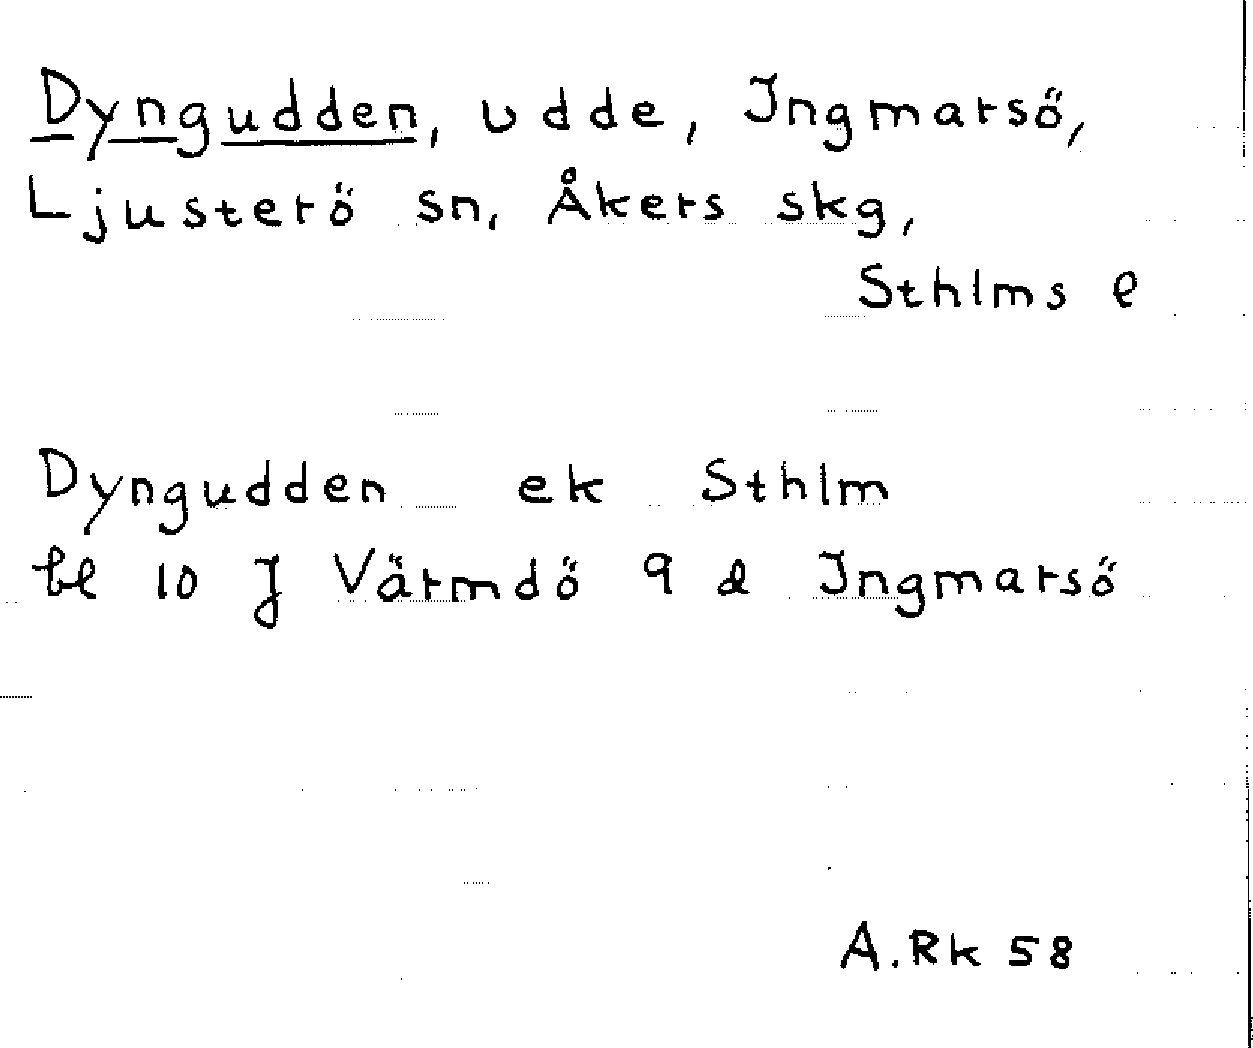 Dyngudden, udde, Ingmarsö,
Ljusterö sn, Åkers skg,
Sthlms l
Dyngudden ek Sthlm
bl 10 J Värmdö 9 d Ingmarsö
A.Rk 58